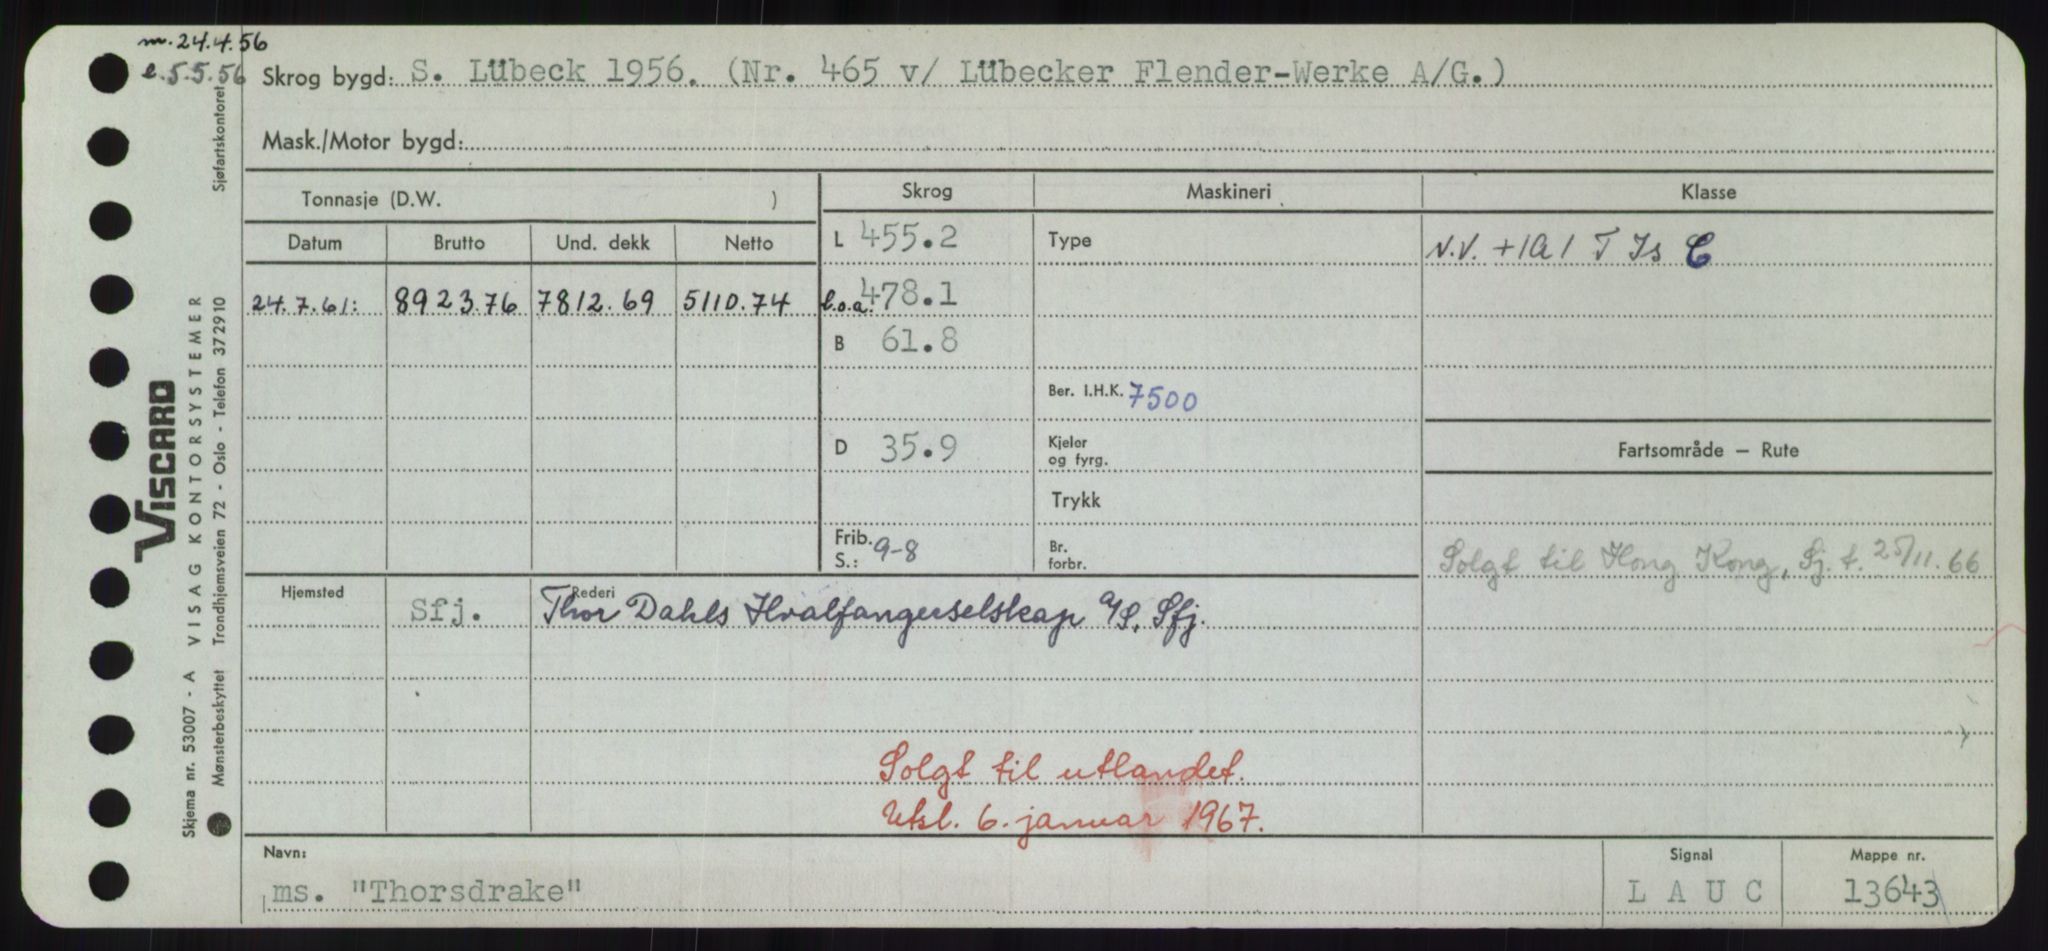 m. 24.4.56
l. 5.5.56
Skrog bygd: S. Lübeck 1956. (Nr. 465 v/ Lübecker Flender-Werke A/G.)
Mask./Motor bygd:
Tonnasje (D.W. )
Skrog
Maskineri
Klasse
Datum Brutto Und. dekk Netto
L 455.2
Type
N.V. +1A1 T Is C
24.7.61: 8923.76 7812.69 5110.74
l.o.a. 478.1
B 61.8
Ber. I.H.K. 7500
D 35.9
Kjeler
og fyrg.
Fartsområde – Rute
Trykk
Frib.
S.: 9-8
Br.
forbr.
Solgt til Hong Kong, Sj. t. 25/11.66
Hjemsted
Sfj.
Rederi
Thor Dahls Hvalfangerselskap A/S, Sfj.
Solgt til utlandet.
Utsl. 6. januar 1967.
Navn:
ms. "Thorsdrake"
Signal
L A U C
Mappe nr.
13643
VISCARD
Skjema nr. 53007 - A VISAG KONTORSYSTEMER
Mønsterbeskyttet Trondhjemsveien 72 - Oslo - Telefon 372910
Sjøfartskontoret